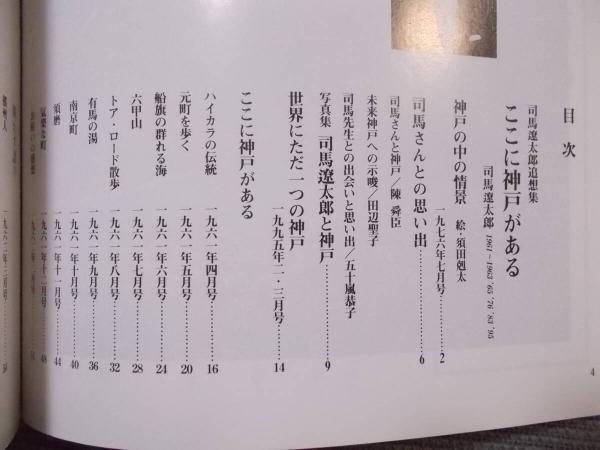 目次
司馬遼太郎追想集
ここに神戸がある
司馬遼太郎 1961〜1963 '65 '76 '83 '95
神戸の中の情景 絵・須田剋太
一九七六年七月号…………2
司馬さんとの思い出…………6
司馬さんと神戸／陳 舜臣
未来神戸への示唆／田辺聖子
司馬先生との出会いと思い出／五十嵐恭子
写真集 司馬遼太郎と神戸…………9
世界にただ一つの神戸
一九九五年二・三月号…………14
ここに神戸がある
ハイカラの伝統 一九六一年四月号…………16
元町を歩く 一九六一年五月号…………20
船旗の群れる海 一九六一年六月号…………24
六甲山 一九六一年七月号…………28
トア・ロード散歩 一九六一年八月号…………32
有馬の湯 一九六一年九月号…………36
南京町 一九六一年十月号…………40
須磨 一九六一年十一月号…………44
気楽な町 一九六一年十二月号…………48
4